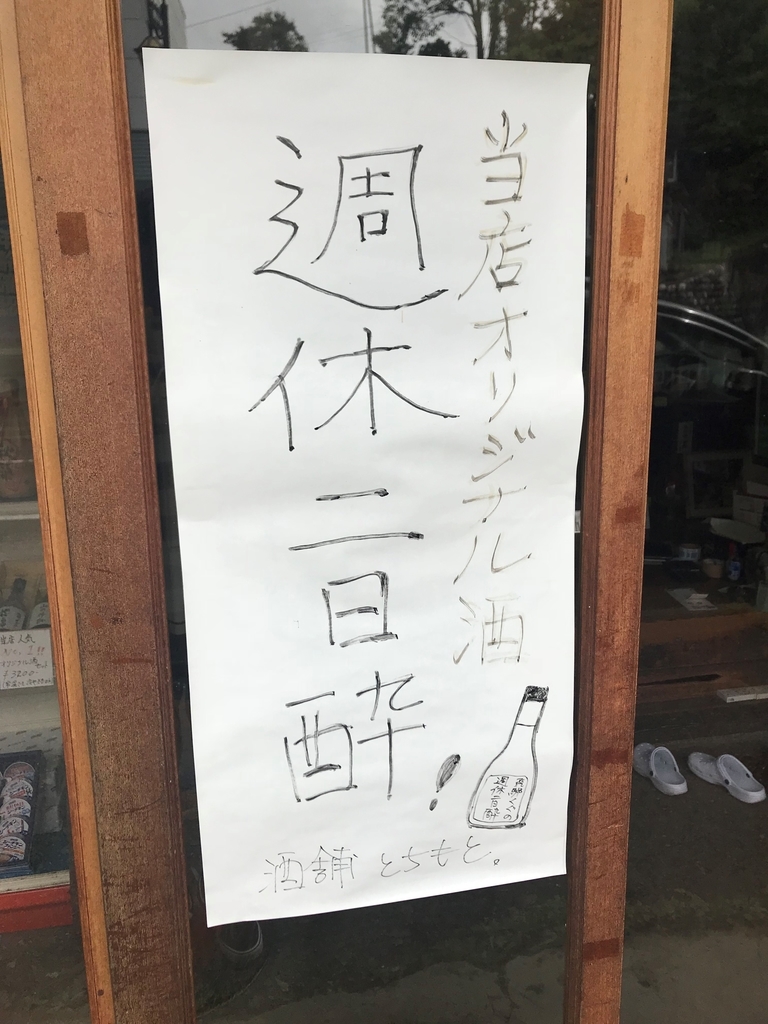 当店オリジナル酒
週休二日酔!
週休二日酔
酒舗 とちもと。